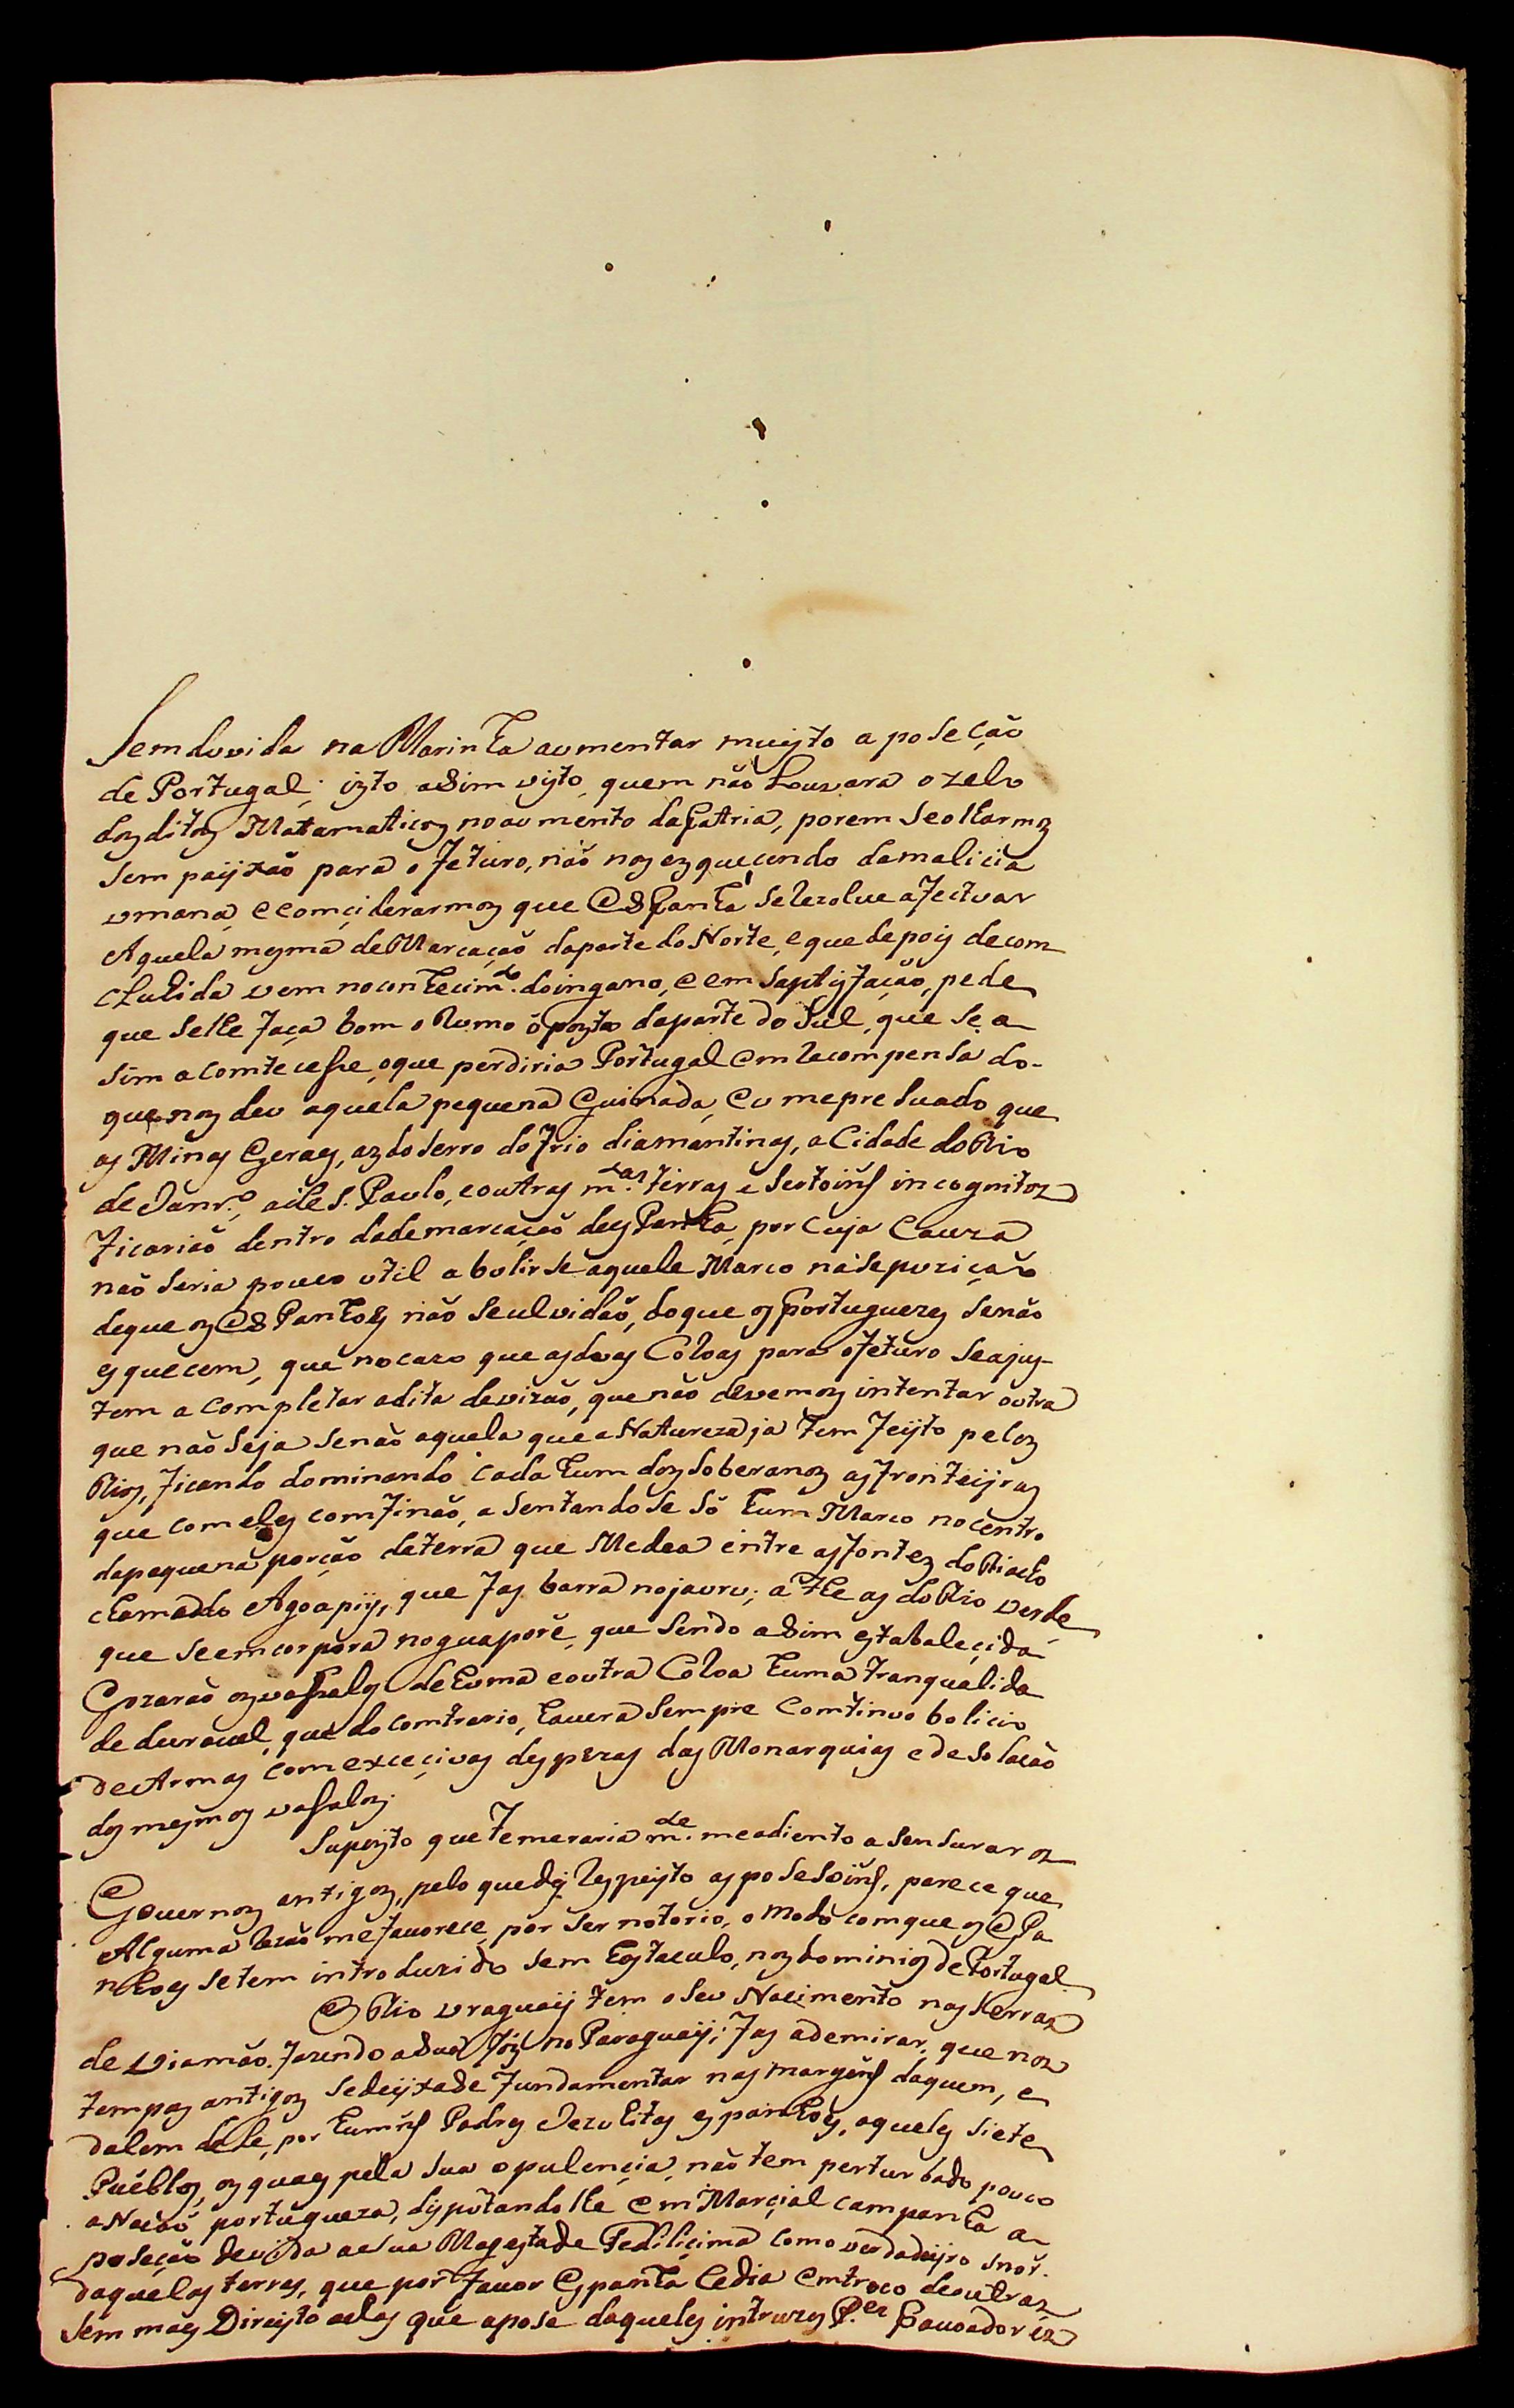 Sem duvida na Marinha aomentar muyto a poseção
de Portugal; izto, asim vyto, quem não Louvara o zelo
doz ditoz Matamaticoz no aomento da Patria, porem se olharmoz
sem paijxaõ para o feturo, não noz ezquecendo da malicia
umana, e comçiderarmoz que ESpanha se rezolve a fectuar
Aquela mesma deMarcação da parte do Norte, e que depoiz de com
cluhida vem no conhecim.to do ingano, e em saptisfação, pede
que selhe faça bom o Rumo ôpozto da parte do Sul, que se a
sim acomtecesse, o que perdiria Portugal em recompensa do-
que noz deu aquela pequena Guinada, Eu mepresuado que
as Minas Geraes, as do serro do frio diamantinas, a Cidade do Rio
de Janr.º, a de S. Paulo, e outras m.tas terras e Sertoins incognitoz
ficarião dentro da demarcação desPanha, por cuja Cauza
não seria pouco util abolirse aquele Marco na sepozição
de que oz ESPanhoes não se ulvidaõ, do que oz portuguezes senão
esquecem, que no cazo que as duas Coroas para o feturo se ajus-
tem a completar a dita devizão, que não devemoz intentar outra
que não seja senão aquela que a Natureza ja tem feyto peloz
Rioz, ficando dominando cada hum doz soberanoz as fronteijras
que com eles comfinão, asentandose só hum Marco no centro
da pequena porção da terra que Medea entre as fontez do Riacho
chamado Agoapiy, que fas barra no jauru; athe as do Rio verde
que se emcorpora no guaporé, que sendo asim estabaleçida
Gozarão oz vasaloz de huma e outra Coroa huma tranqualida
de duravel, que do comtrario, havera sempre comtinuo bolicio
de Armas com execivas despezas das Monarquias e desolação
doz mesmoz vasaloz.
Supozto que temeraria m.te me adiento a sensurar oz
Governoz antigoz, pelo que diz respeyto as posesoins, parece que
Alguma rezaõ me favorece, por ser notorio, o modo com que oz ESpa
nhoes se tem introduzido sem hostaculo, noz dominioz de Portugal
O Rio uraguaij tem o seu Nacimento nas serras
de Viamão. fazendo a sua fóz no Paraguaij; fas ademirar, que noz
tempoz antigoz sedeijxase fundamentar nas margens daquem, e
dalem dele, por humñs Padres Jezuhitas espanhoes, aqueles siete
Puebloz, oz quaes pela sua opulençia, não tem perturbado pouco
a Nação portugueza, disputandolhe em Marçial campanha a
poseção devida a sua Magestade Fedeliçima como verdadeijro snor.
daquelas terras, que por favor Espanha Cedia em troco de outraz
sem mais Direyto aelas que a pose daqueles intruzos P.es Povoadorez